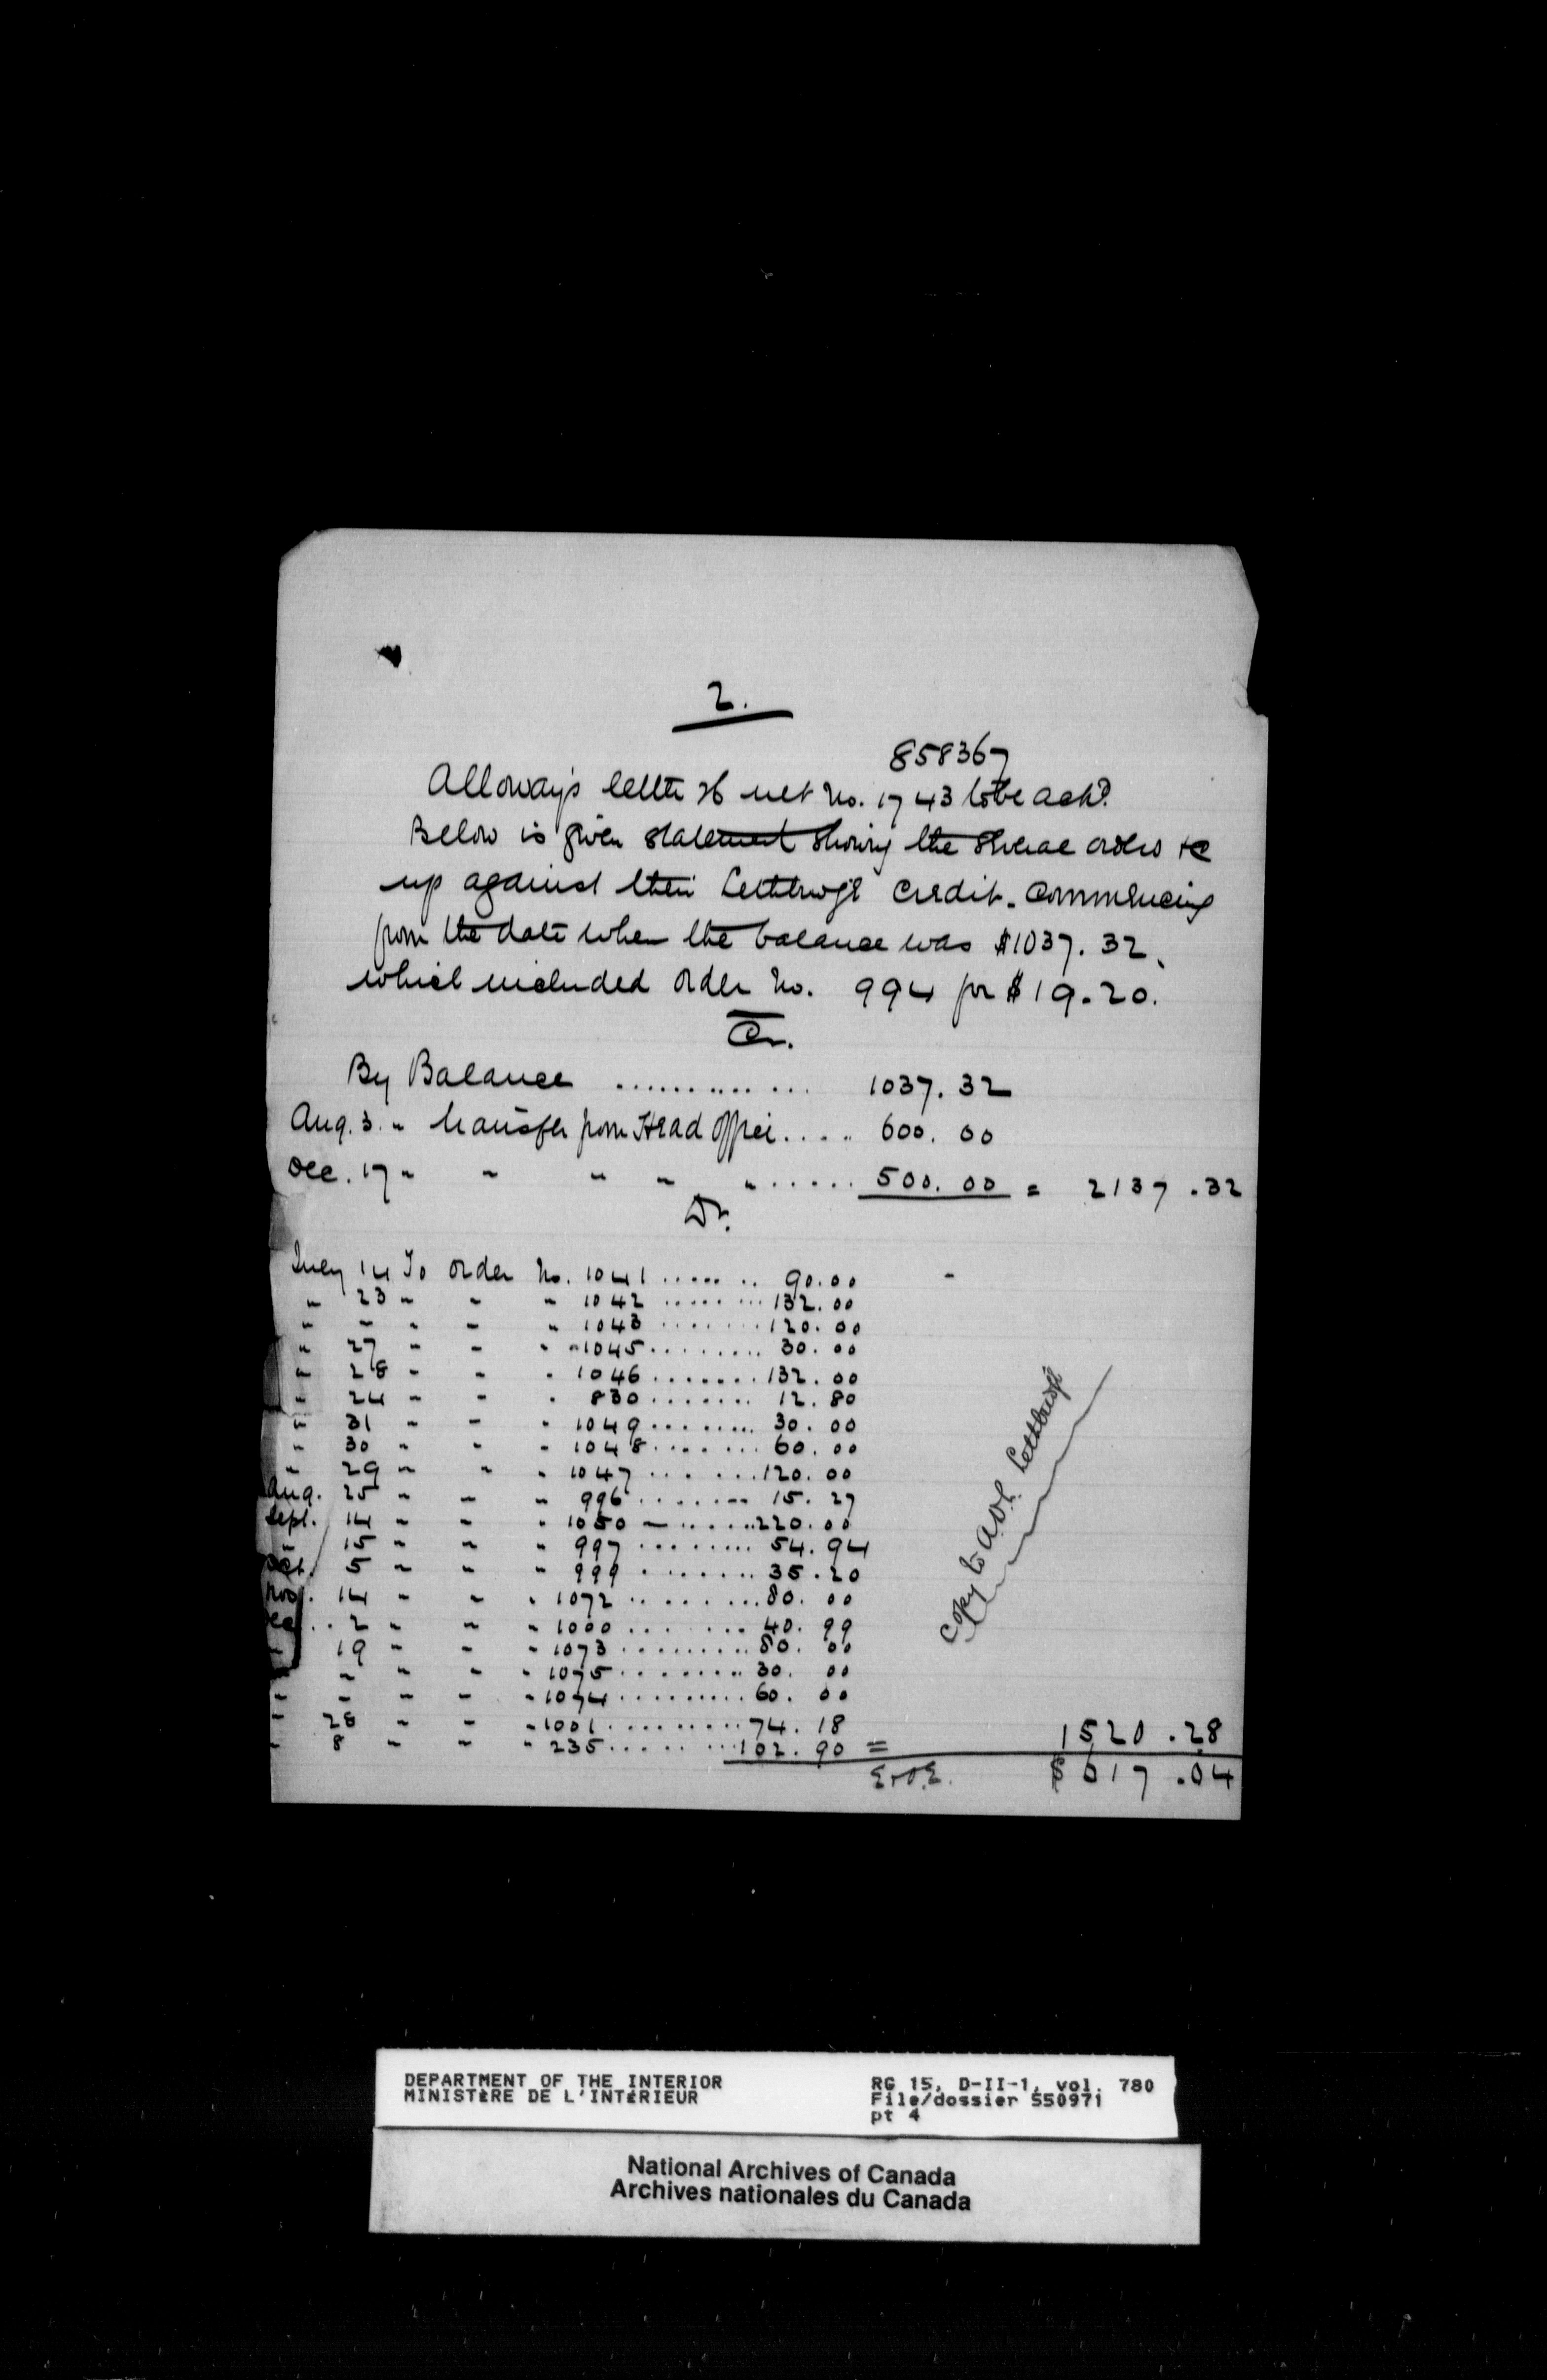 2.
858367
Alloway's letter 26 ult no. 1743 to be ackd.
Below is given statement showing the several orders to
up against their Lethbridge credit. Commencing
from the date when the balance was $1037.32,
which included order no. 994 for $19.20.
Cr.
By Balance ............ 1037.32
Aug. 3. " transfer from Head Office..... 600.00
Dec. 17 " " " " " ...... 500.00 = 2137.32
Dr.
July 14 To order no. 1041 ....... 90.00
" 23 " " " 1042 ........ 132.00
" " " " " 1043 ........ 120.00
" 27 " " " 1045 ........ 30.00
" 28 " " " 1046 ....... 132.00
" 24 " " " 830 ....... 12.80
" 31 " " " 1049 ........ 30.00
" 30 " " " 1048 ....... 60.00
" 29 " " " 1047 ...... 120.00
Aug. 25 " " " 996 ....... 15.27
Sept. 14 " " " 1050 ...... 220.00
" 15 " " " 997 ........ 54.94
Oct. 5 " " " 999 ........ 35.20
Nov. 14 " " " 1072 ......... 80.00
Dec. 2 " " " 1000 ....... 40.99
" 19 " " " 1073 ......... 80.00
" " " " " 1075 ........ 30.00
" " " " " 1074 ......... 60.00
" 28 " " " 1001 ......... 74.18
" 8 " " " 235 ........ 102.90 = 1520.28
E.&O.E. $617.04
Copy to A.D.L. Lethbridge
DEPARTMENT OF THE INTERIOR
MINISTÈRE DE L'INTÉRIEUR
RG 15, D-II-1, vol. 780
File/dossier 550971
pt 4
National Archives of Canada
Archives nationales du Canada